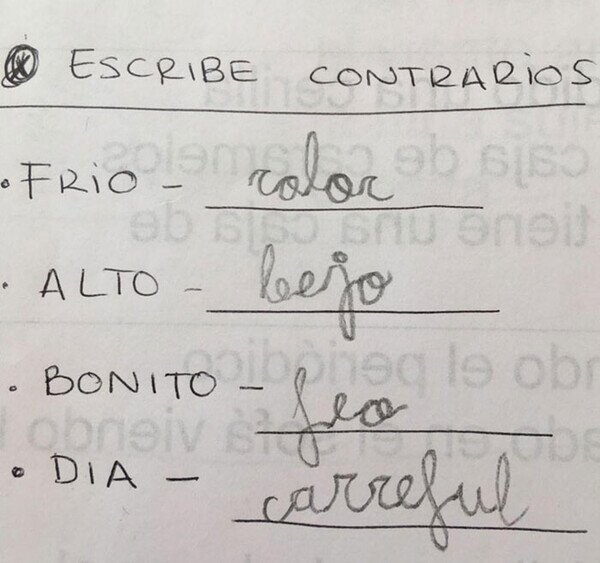 ESCRIBE CONTRARIOS
· FRIO - calor
· ALTO - bajo
· BONITO - feo
· DIA - carreful